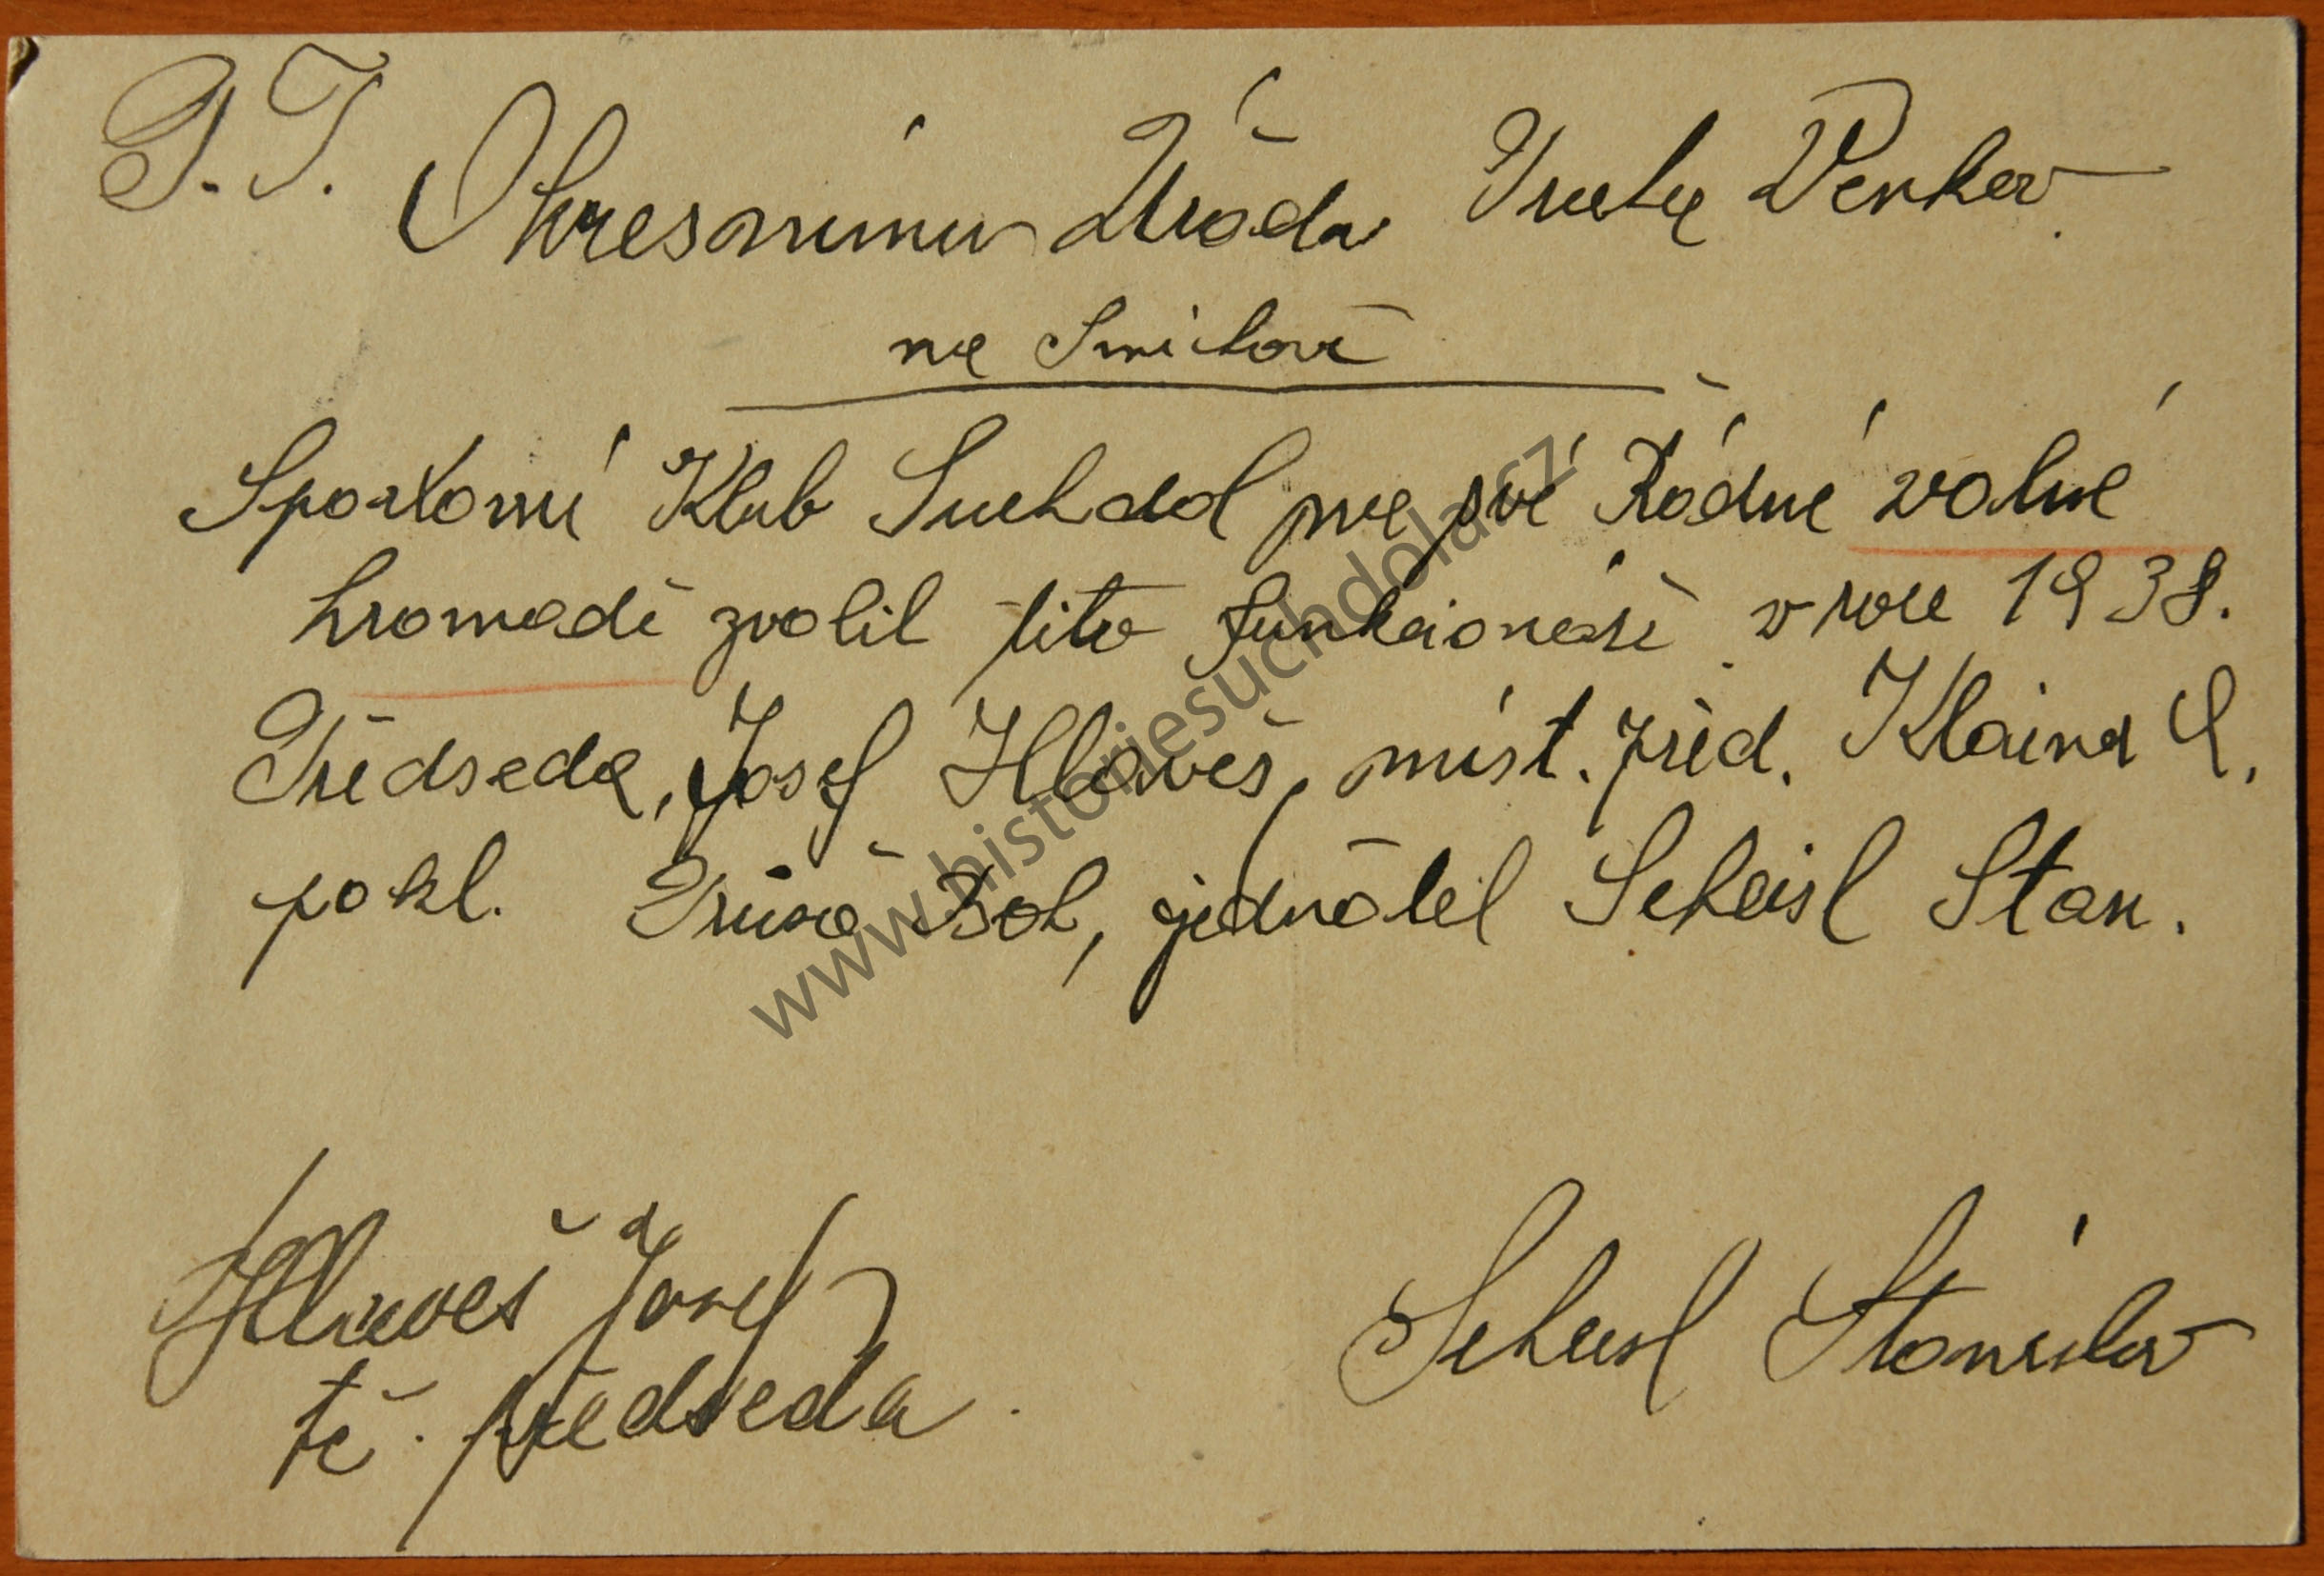 P.T. Okresnímu Úřadu Praha Venkov.
na Smíchově
Sportovní Klub Suchdol na své Řádné valné
hromadě zvolil tito funkcionáři v roce 1938.
Předseda, Josef Hlaveš, míst. před. Klaina
pokl. Průša Boh, jednátel Scheisl Stan.
Hlaveš Josef Scheisl Stanislav
tč. předseda.
www.historiesuchdola.cz